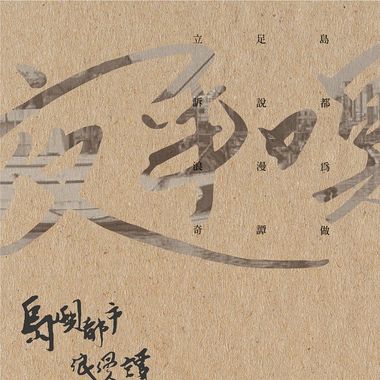 立足島
訴說都
浪漫爲
奇譚做
島嶼都市
浪漫譚